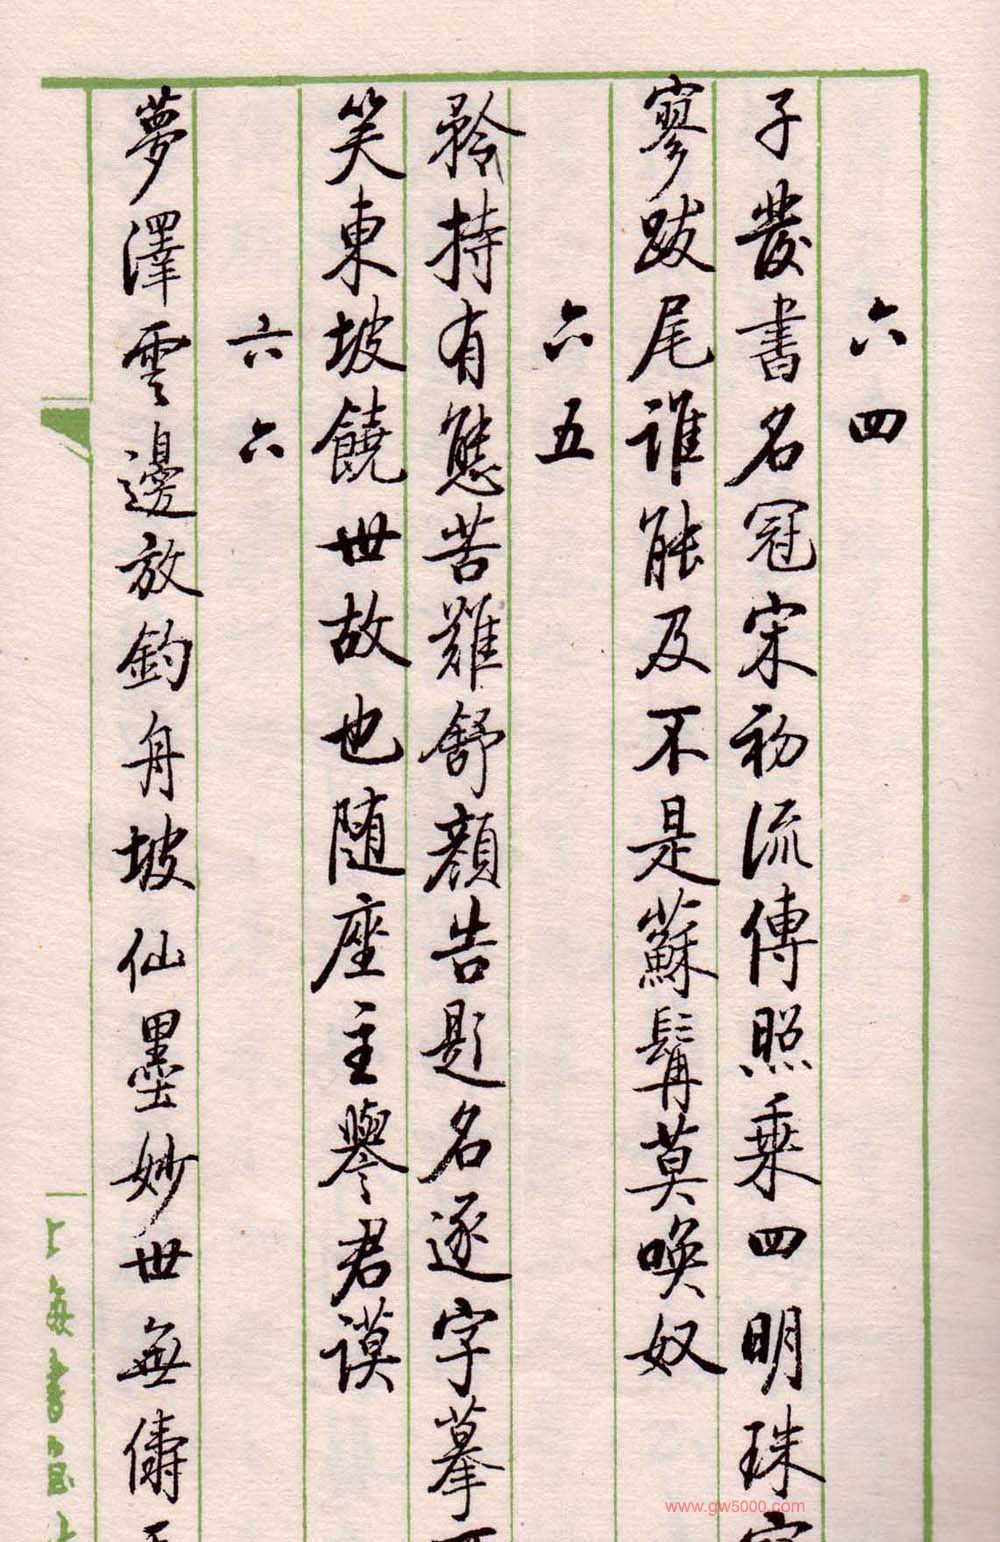 六四
子發書名冠宋初流傳照乘四明珠
寥跋尾誰能及不是蘇髯莫喚奴
六五
矜持有態苦難舒顏告題名逐字摹
笑東坡饒世故也隨座主譽君謨
六六
夢澤雲邊放釣舟坡仙墨妙世無儔
上海書
www.gw5000.com